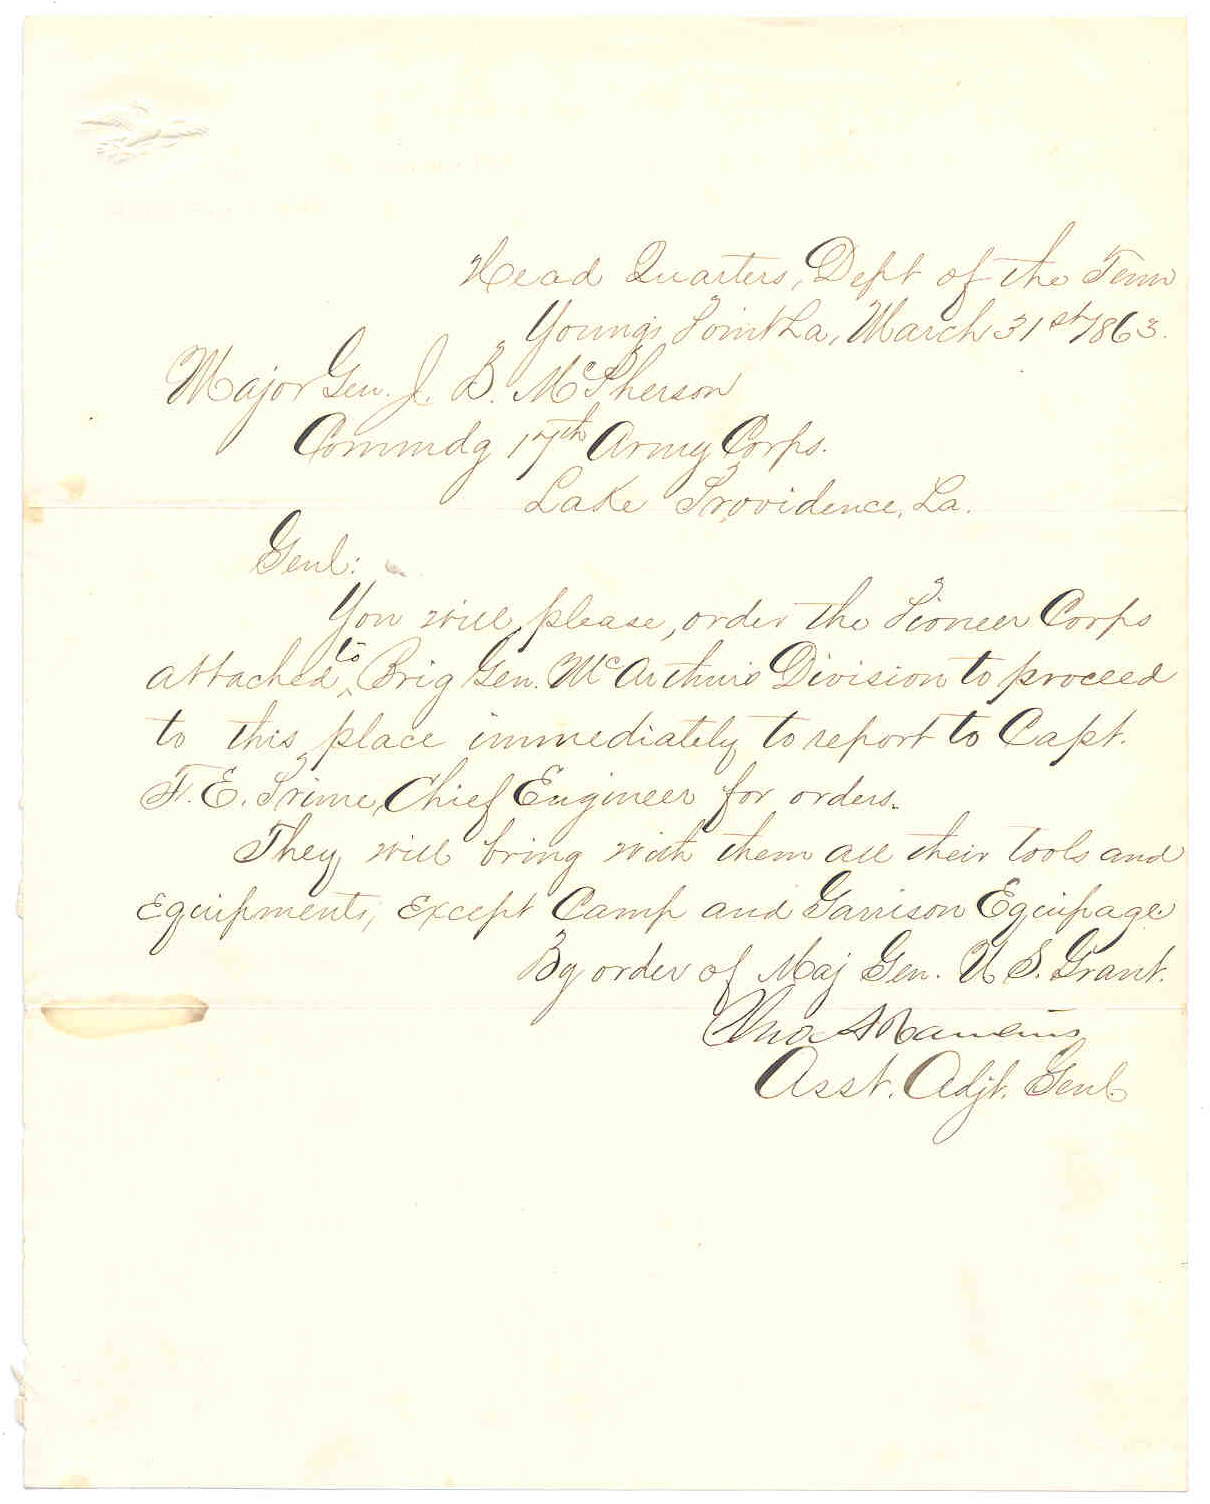 Head Quarters, Dept of the Tenn
Young's Point La, March 31st 1863.
Major Gen. J. B. McPherson
Commdg 17th Army Corps.
Lake Providence, La.
Genl:
You will, please, order the Pioneer Corps
attached to Brig Gen. McArthurs Division to proceed
to this place immediately to report to Capt.
F. E. Prime, Chief Engineer for orders.
They will bring with them all their tools and
equipments, except Camp and Garrison Equipage
By order of Maj Gen. U. S. Grant.
Jno A Rawlins
Asst. Adjt. Genl